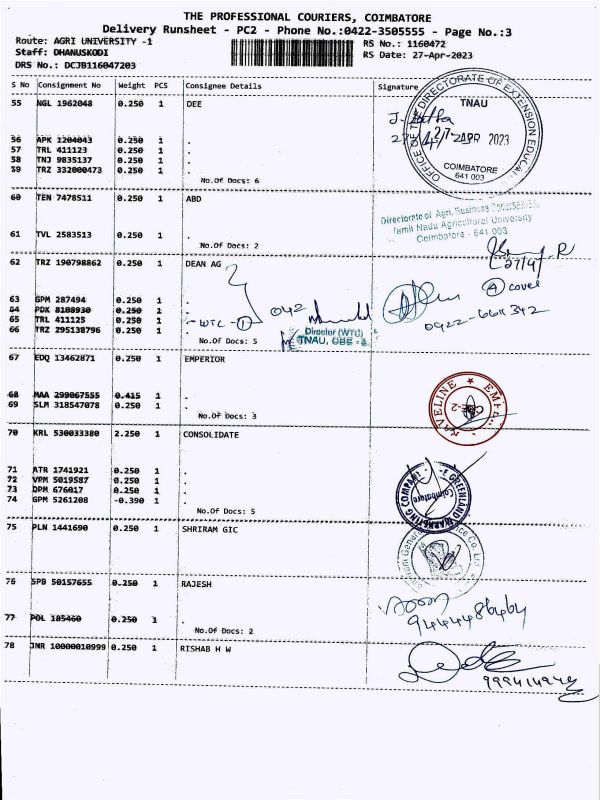 THE PROFESSIONAL COURIERS, COIMBATORE
Delivery Runsheet - PC2 - Phone No.:0422-3505555 - Page No.:3
Route: AGRI UNIVERSITY -1
RS No.: 1160472
Staff: DHANUSKODI
RS Date: 27-Apr-2023
DRS No.: DCJB116047203
S No Consignment No Weight PCS Consignee Details Signature
55 NGL 1962048 0.250 1 DEE
OFFICE OF THE DIRECTORATE OF EXTENSION EDUCATION
TNAU
27 APR 2023
COIMBATORE
641 003
56 APK 1204043 0.250 1 .
57 TRL 411123 0.250 1 .
58 TNJ 9835137 0.250 1 .
59 TRZ 332000473 0.250 1 .
No.Of Docs: 6
60 TEN 7478511 0.250 1 ABD
Directorate of Agri. Business
Tamil Nadu Agricultural University
Coimbatore - 641 003
61 TVL 2583513 0.250 1 .
No.Of Docs: 2
27/4
62 TRZ 190798862 0.250 1 DEAN AG
4 cover
63 GPM 287494 0.250 1 .
64 PDK 8108930 0.250 1 .
65 TRL 411125 0.250 1 . - WTC - 1
66 TRZ 295138796 0.250 1 .
No.Of Docs: 5
042
Director (WTC)
TNAU, CBE - 3
0422-6611342
67 EDQ 13462871 0.250 1 EMPERIOR
68 MAA 299067555 0.415 1 .
69 SLM 318547078 0.250 1 .
No.Of Docs: 3
70 KRL 530033380 2.250 1 CONSOLIDATE
GREENLAND MARKETING COMPANY
Coimbatore
71 ATR 1741921 0.250 1 .
72 VPM 5019587 0.250 1 .
73 DPM 676017 0.250 1 .
74 GPM 5261208 -0.390 1 .
No.Of Docs: 5
75 PLN 1441690 0.250 1 SHRIRAM GIC
76 SPB 50157655 0.250 1 RAJESH
9444486464
77 POL 185460 0.250 1 .
No.Of Docs: 2
78 JNR 10000010999 0.250 1 RISHAB H W